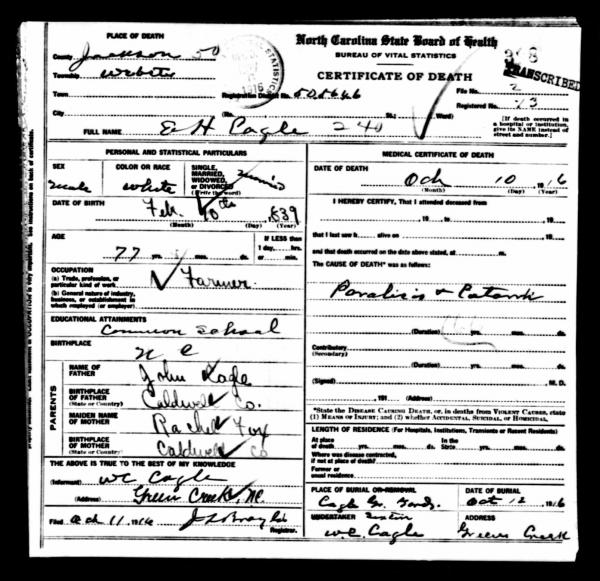 PLACE OF DEATH
County Jackson 50
Township Webster
Town
City
North Carolina State Board of Health
BUREAU OF VITAL STATISTICS
CERTIFICATE OF DEATH
TRANSCRIBED
Registration District No. 505646
File No. 2
Registered No. 13
(No. St.; Ward)
[If death occurred in a hospital or institution, give its NAME instead of street and number.]
FULL NAME E H Cagle 240
PERSONAL AND STATISTICAL PARTICULARS
SEX male
COLOR OR RACE white
SINGLE, MARRIED, WIDOWED, or DIVORCED (Write the word)
DATE OF BIRTH Feb. 10th, 1839
(Month) (Day) (Year)
AGE 77 yrs. mos. ds.
If LESS than 1 day, hrs. or min.
OCCUPATION
(a) Trade, profession, or particular kind of work Farmer
(b) General nature of industry, business, or establishment in which employed (or employer)
EDUCATIONAL ATTAINMENTS
Common School
BIRTHPLACE
N C
PARENTS
NAME OF FATHER John Kagle
BIRTHPLACE OF FATHER (State or Country) Caldwell Co.
MAIDEN NAME OF MOTHER Rachel Fox
BIRTHPLACE OF MOTHER (State or Country) Caldwell Co
THE ABOVE IS TRUE TO THE BEST OF MY KNOWLEDGE
(Informant) W C Cagle
(Address) Green Creek, NC.
Filed Och 11, 1916
Registrar.
MEDICAL CERTIFICATE OF DEATH
DATE OF DEATH
Och 10, 1916
(Month) (Day) (Year)
I HEREBY CERTIFY, That I attended deceased from
, 19 to , 19
that I last saw h alive on , 19
and that death occurred on the date above stated, at m.
The CAUSE OF DEATH* was as follows:
Paralisis &
(Duration) yrs. mos. ds.
Contributory (Secondary)
(Duration) yrs. mos. ds.
(Signed) , M. D.
, 191 (Address)
*State the DISEASE CAUSING DEATH, or, in deaths from VIOLENT CAUSES, state (1) MEANS OF INJURY; and (2) whether ACCIDENTAL, SUICIDAL, or HOMICIDAL.
LENGTH OF RESIDENCE (For Hospitals, Institutions, Transients or Recent Residents)
At place of death yrs. mos. ds. In the State yrs. mos. ds.
Where was disease contracted, if not at place of death?
Former or usual residence
PLACE OF BURIAL OR REMOVAL
DATE OF BURIAL
Oct 12, 1916
UNDERTAKER
W C. Cagle
ADDRESS
Greens Creek